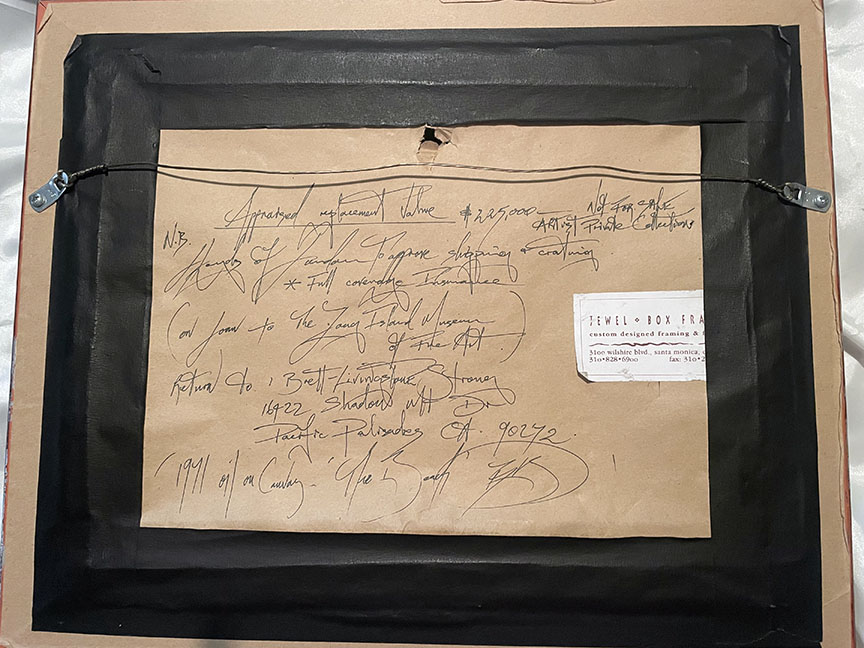 Appraised replacement Value $225,000 — Not For Sale
N.B. Artist Private Collection
of London To approve shipping & crating
* Full coverage Insurance
(on loan to The Long Island Museum
of Fine Art.)
Return to: Brett-Livingstone Strong
16422 Shadow Mt Dr
Pacific Palisades CA. 90272.
oil on Canvas - "The Beach"
JEWEL BOX FRA
custom designed framing &
3100 wilshire blvd., santa monica,
310•828•6900 fax: 310•2